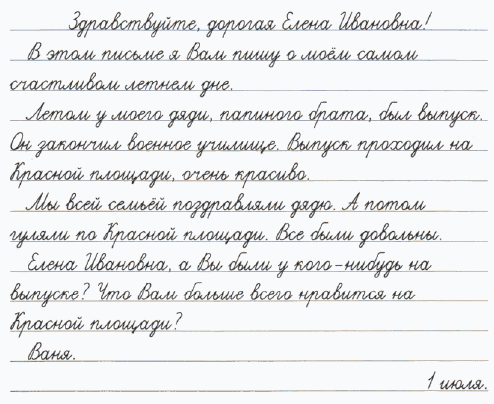 Здравствуйте, дорогая Елена Ивановна!
В этом письме я Вам пишу о моём самом
счастливом летнем дне.
Летом у моего дяди, папиного брата, был выпуск.
Он закончил военное училище. Выпуск проходил на
Красной площади, очень красиво.
Мы всей семьёй поздравляли дядю. А потом
гуляли по Красной площади. Все были довольны.
Елена Ивановна, а Вы были у кого-нибудь на
выпуске? Что Вам больше всего нравится на
Красной площади?
Ваня.
1 июля.